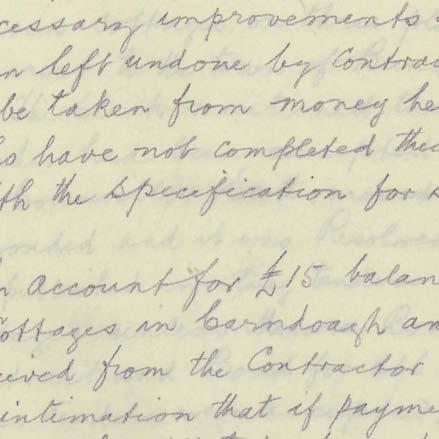 cessary improvements
n left undone by Contrac
be taken from money he
s have not completed thei
th the specification for s
n Account for £15 balan
ottages in Carndoagh an
eived from the Contractor
intimation that if payme